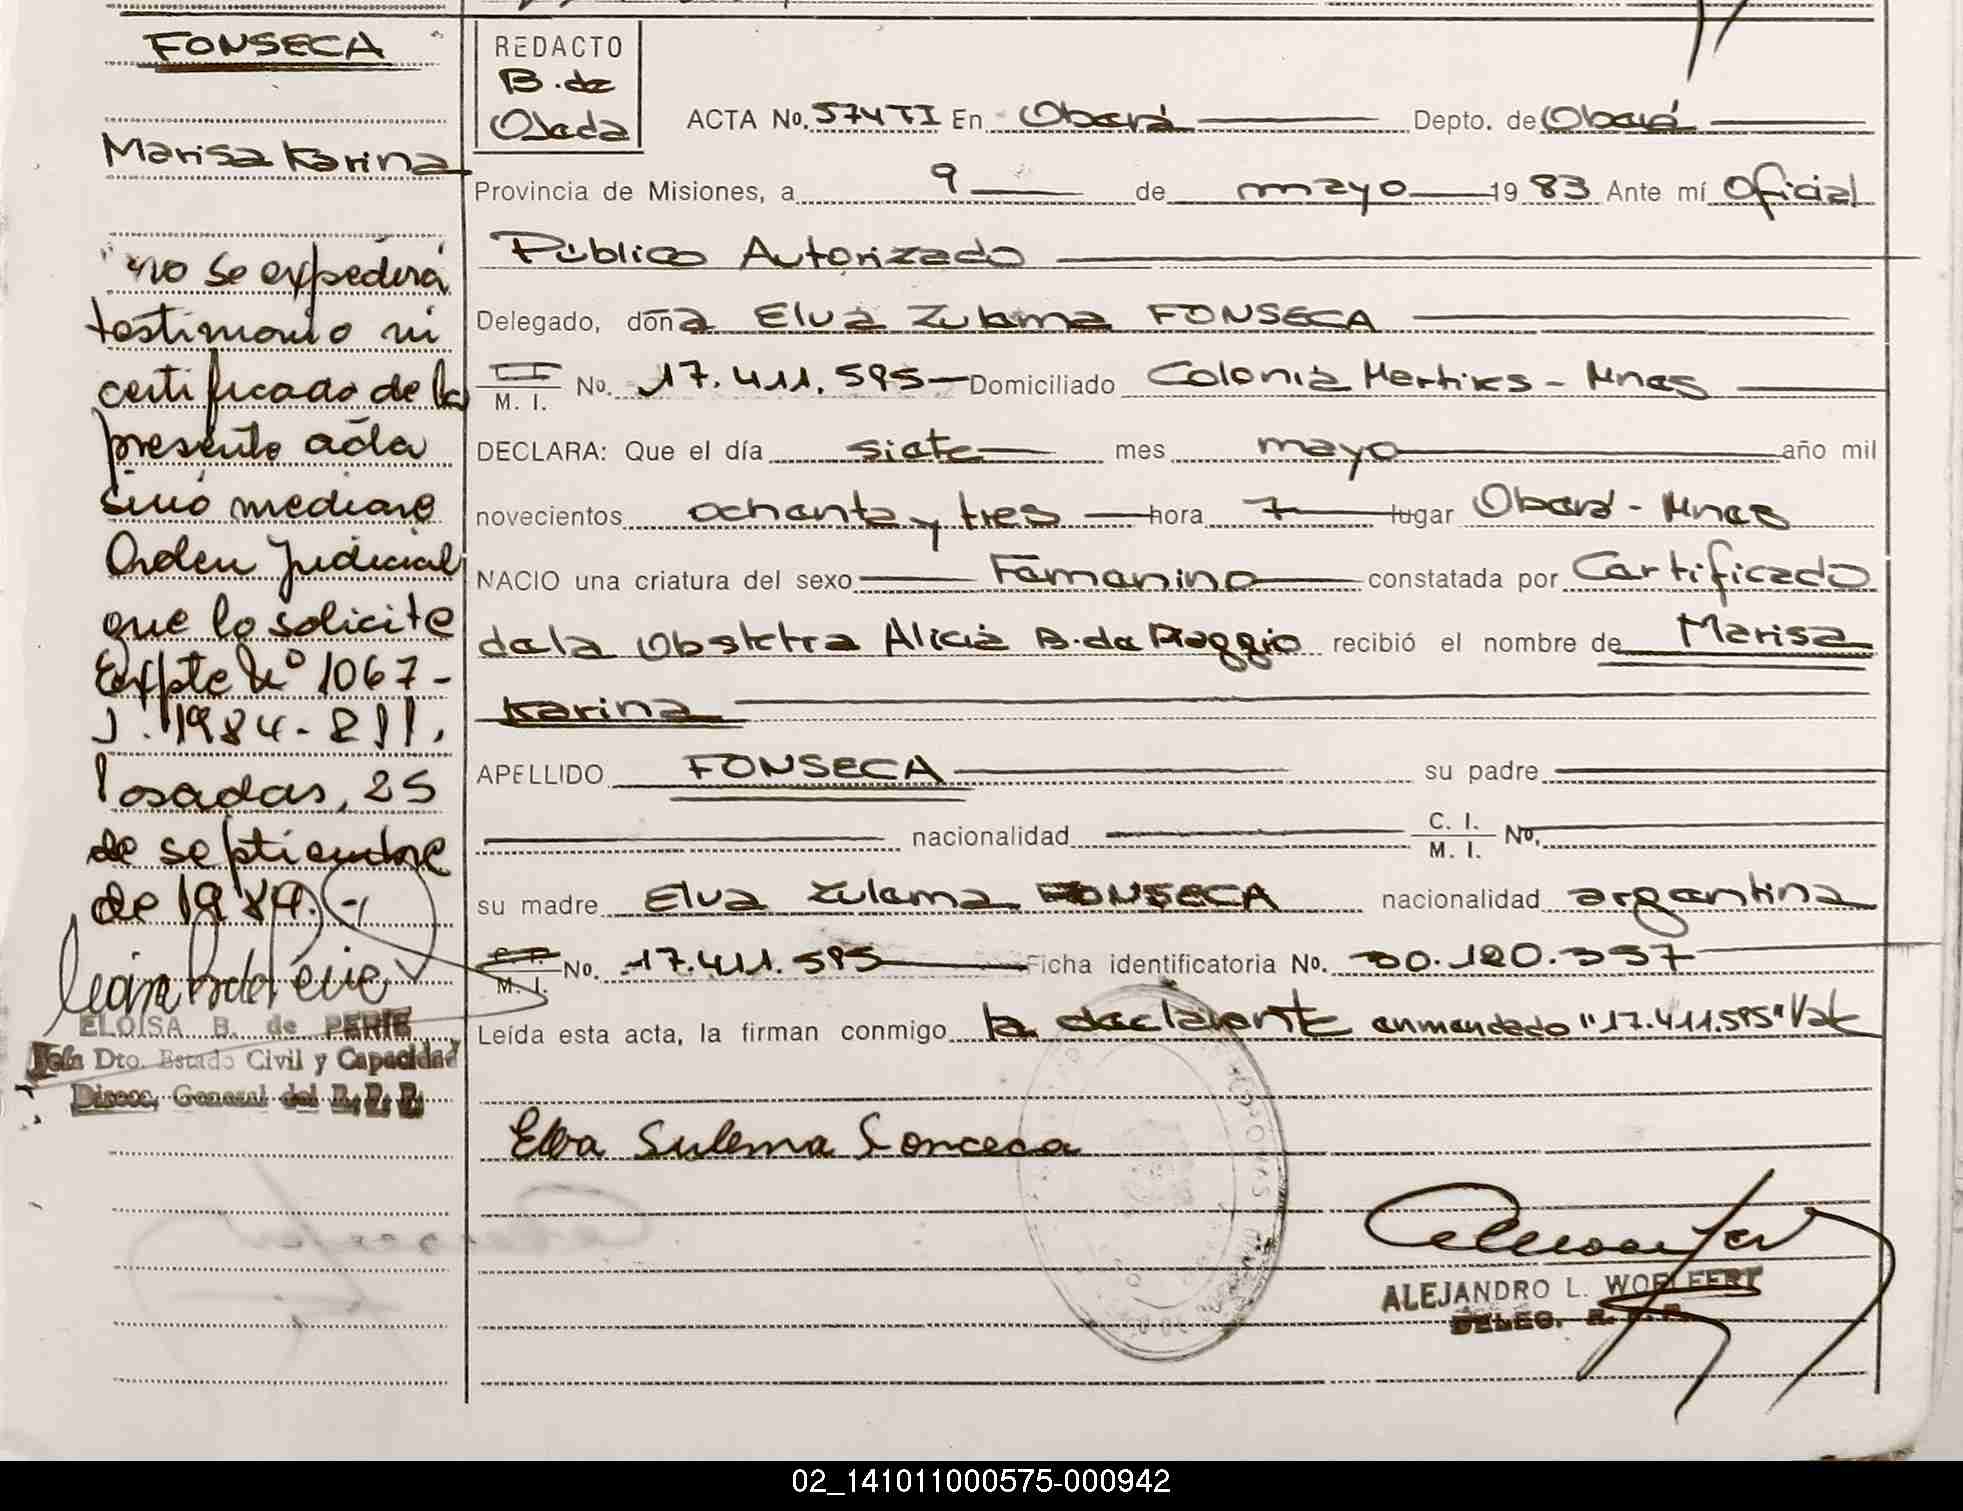 FONSECA
Marisa Karina
"no se expedirá
testimonio ni
certificado de la
presente acta
sinó mediare
Orden Judicial
que lo solicite
Expte Nº 1067-
J. 1984-811.
Posadas, 25
de septiembre
de 1984.-
ELOISA B. de PERIE
Jefa Dto. Estado Civil y Capacidad
Direcc. General del R. P. P.
REDACTO
B. de
Ojeda
ACTA No. 574 TI En Oberá Depto. de Oberá
Provincia de Misiones, a 9 de mayo 19 83 Ante mí Oficial
Público Autorizado
Delegado, doña Elva Zulema FONSECA
C I M. I. No. 17.411.595 Domiciliado Colonia Mertiks - Mnes
DECLARA: Que el día siete mes mayo año mil
novecientos ochenta y tres hora 7 lugar Oberá - Mnes
NACIO una criatura del sexo Femenino constatada por Certificado
de la Obstetra Alicia B. de Poggio recibió el nombre de Marisa
Karina
APELLIDO FONSECA su padre
nacionalidad C. I. M. I. No.
su madre Elva Zulema FONSECA nacionalidad argentina
C. I. M. I. No. 17.411.595 Ficha identificatoria No. 30.120.357
Leída esta acta, la firman conmigo la declarante enmendado "17.411.595" Vale
Elva Sulema Fonceca
ALEJANDRO L. WOELFERT
DELEG. R. P. P.
02_141011000575-000942